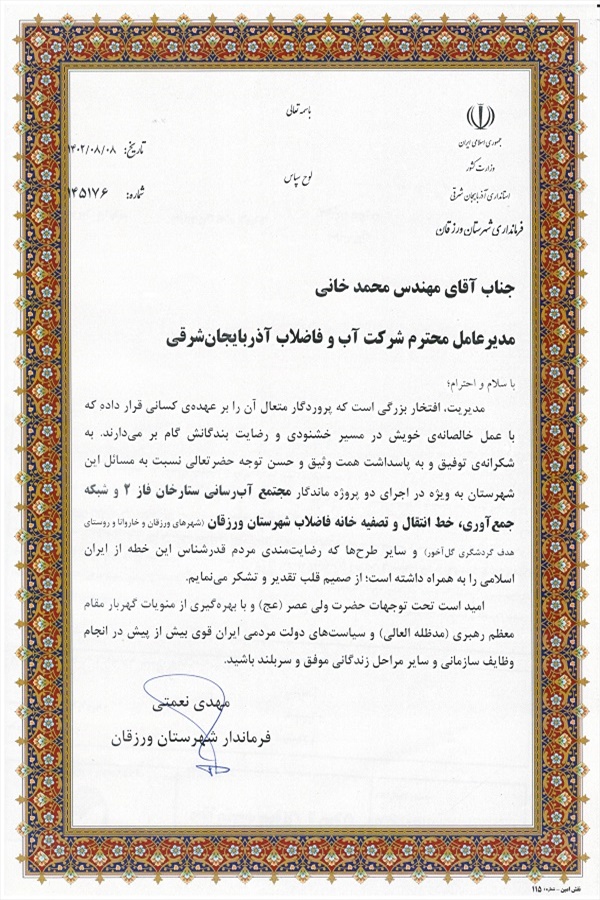 باسمه تعالی
جمهوری اسلامی ایران
وزارت کشور
استانداری آذربایجان شرقی
فرمانداری شهرستان ورزقان
تاریخ: ۱۴۰۲/۰۸/۰۸
شماره: ۱۴۵۱۷۶
لوح سپاس
جناب آقای مهندس محمد خانی
مدیرعامل محترم شرکت آب و فاضلاب آذربایجان‌شرقی
با سلام و احترام؛
مدیریت، افتخار بزرگی است که پروردگار متعال آن را بر عهده‌ی کسانی قرار داده که
با عمل خالصانه‌ی خویش در مسیر خشنودی و رضایت بندگانش گام بر می‌دارند. به
شکرانه‌ی توفیق و به پاسداشت همت وثیق و حسن توجه حضرتعالی نسبت به مسائل این
شهرستان به ویژه در اجرای دو پروژه ماندگار مجتمع آب‌رسانی ستارخان فاز ۲ و شبکه
جمع‌آوری، خط انتقال و تصفیه خانه فاضلاب شهرستان ورزقان (شهرهای ورزقان و خاروانا و روستای
هدف گردشگری گل‌آخور) و سایر طرح‌ها که رضایت‌مندی مردم قدرشناس این خطه از ایران
اسلامی را به همراه داشته است؛ از صمیم قلب تقدیر و تشکر می‌نمایم.
امید است تحت توجهات حضرت ولی عصر (عج) و با بهره‌گیری از منویات گهربار مقام
معظم رهبری (مدظله العالی) و سیاست‌های دولت مردمی ایران قوی بیش از پیش در انجام
وظایف سازمانی و سایر مراحل زندگانی موفق و سربلند باشید.
مهدی نعمتی
فرماندار شهرستان ورزقان
نقش امین - شماره: ۱۱۵